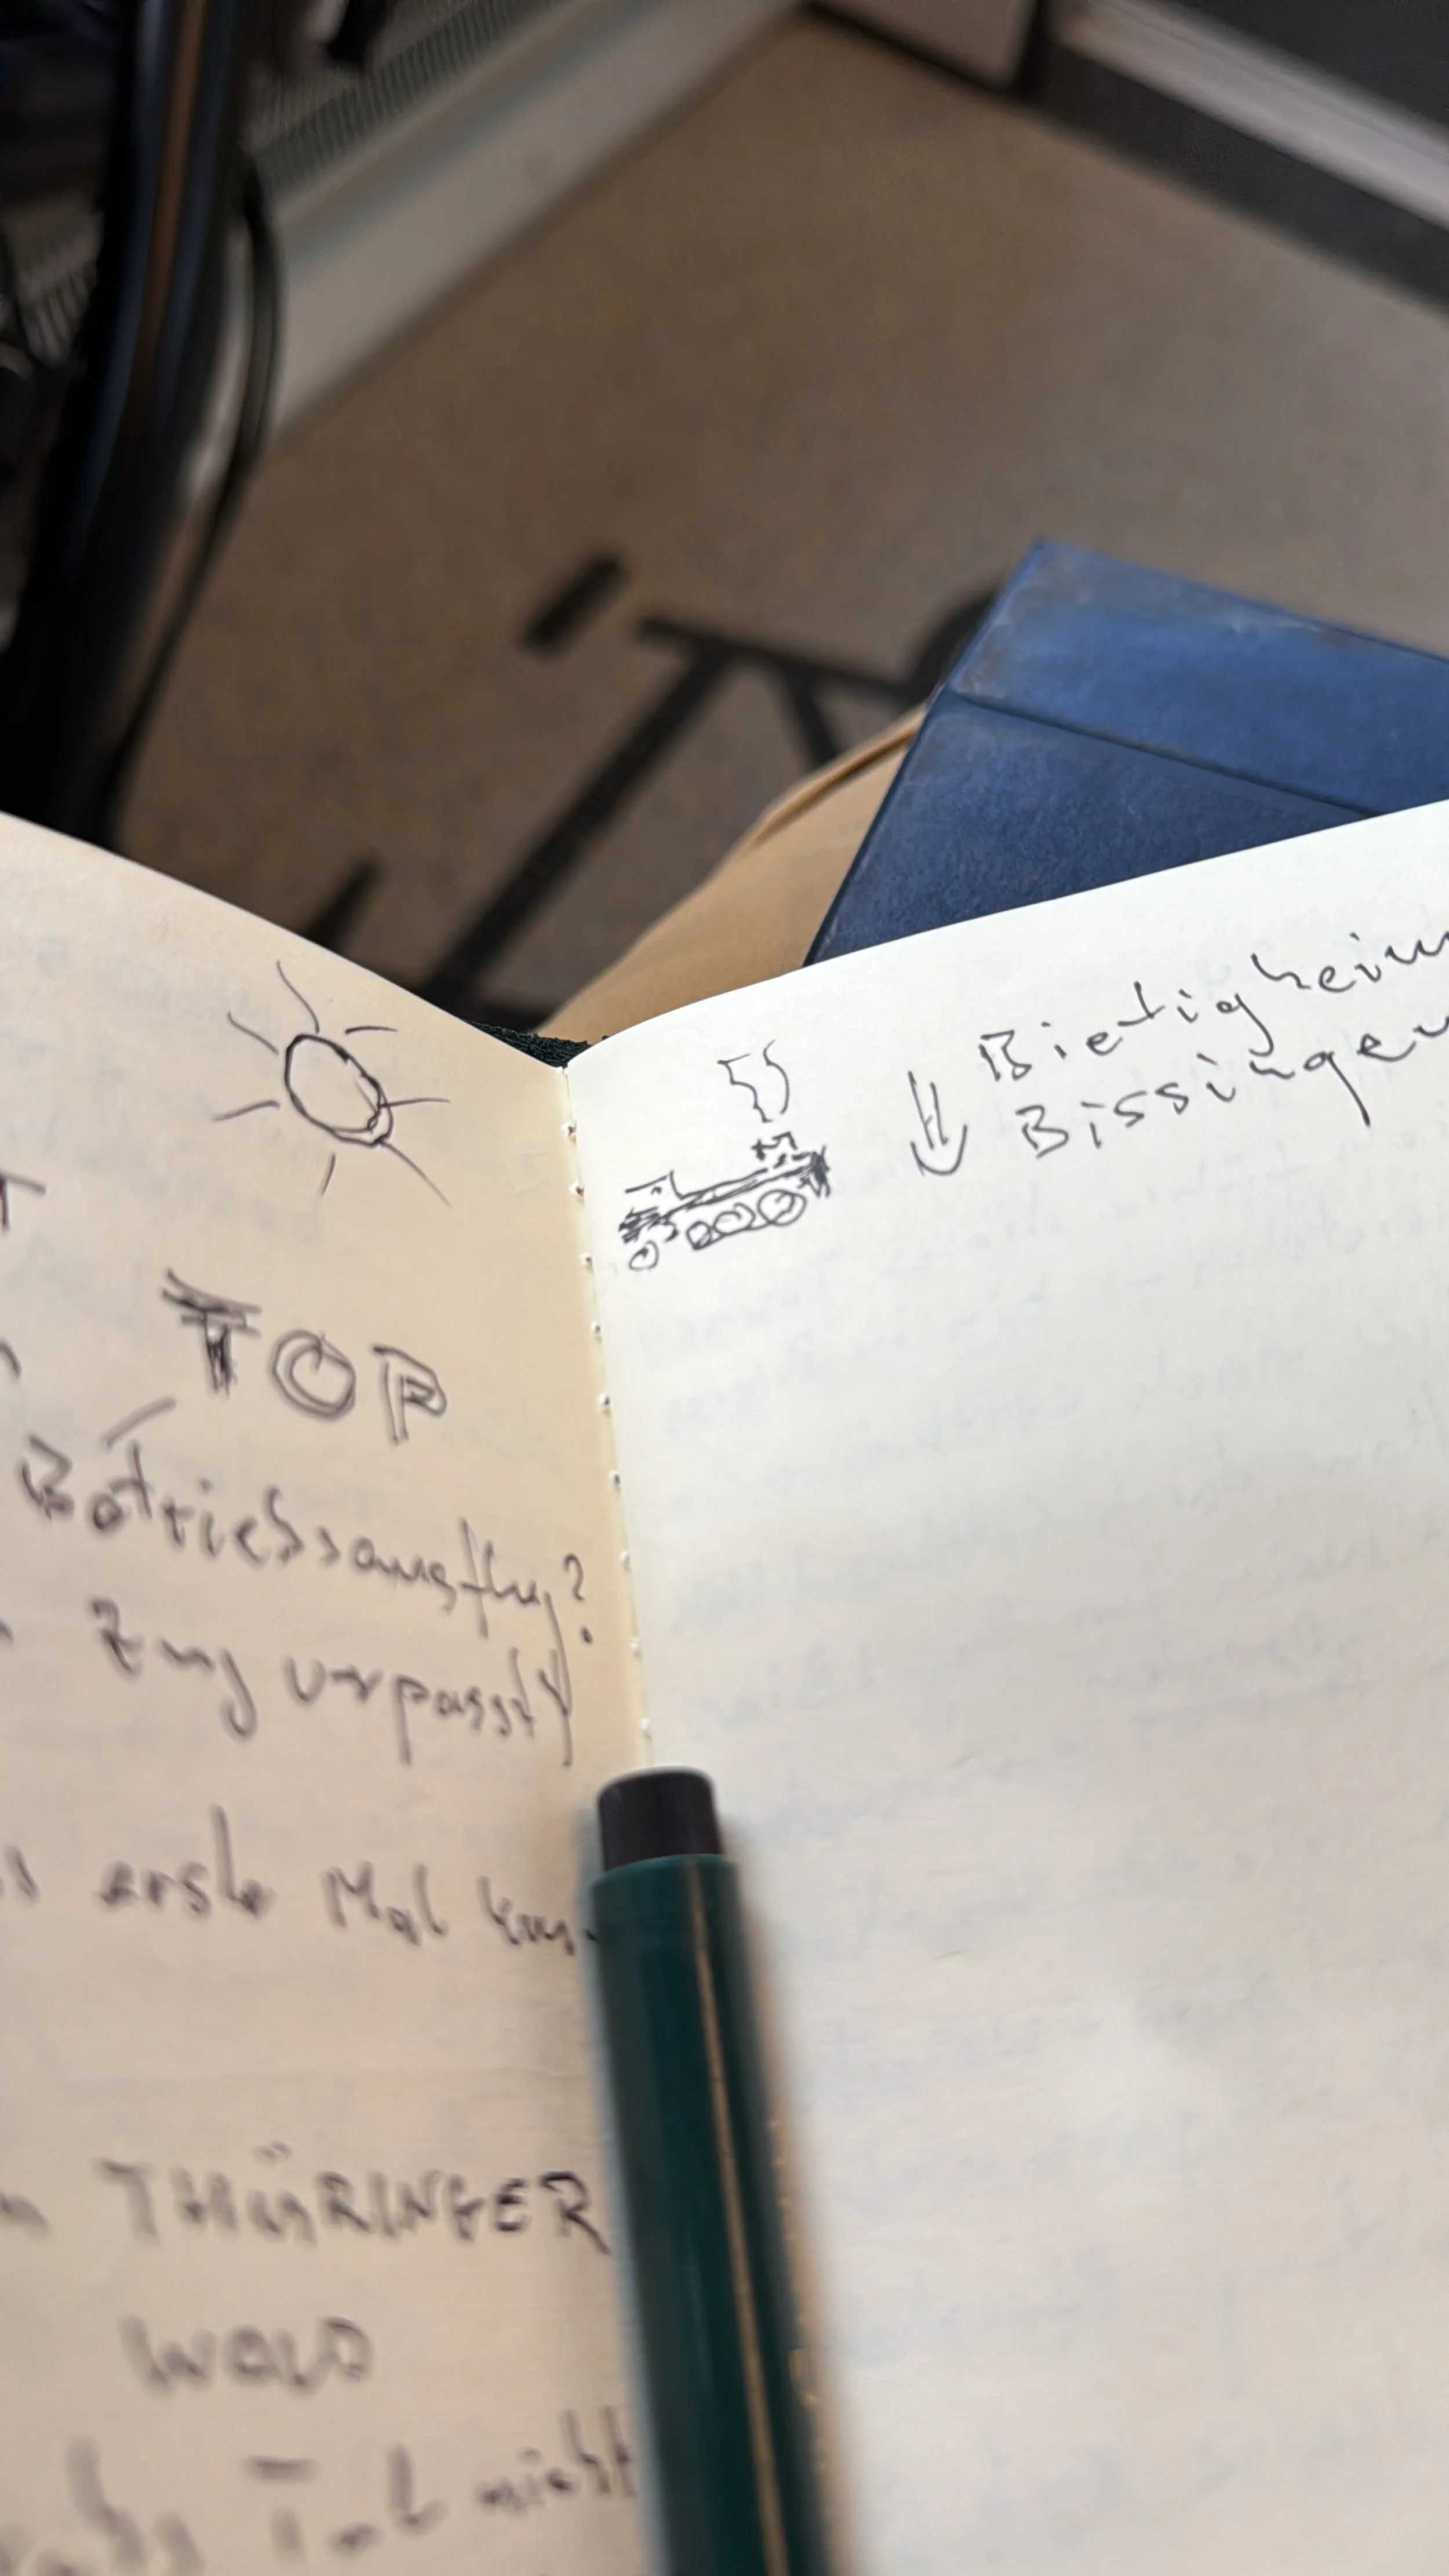 TOP
Betriebsausflug?
Zug verpasst
erste Mal
THüRINGER
WALD
nicht
Bietigheim
Bissingen